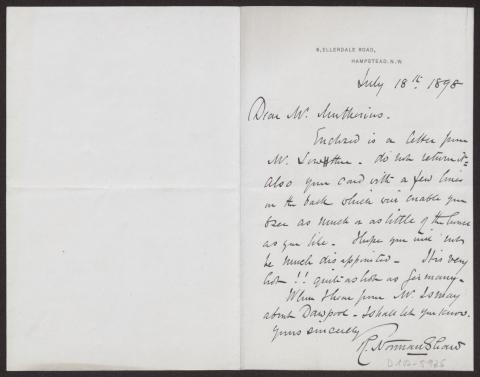 6, ELLERDALE ROAD,
HAMPSTEAD. N.W
July 18th 1898
Dear Mr. Muthesius.
Enclosed is a letter from
Mr. - do not return it =
Also your card with a few lines
on the back which will enable you
to see as much or as little of the house
as you like - I hope you will not
be much disappointed - It is very
hot !! quite as hot as Germany -
When I hear from Mr. Ismay
about Dawpool - I shall let you know.
Yours sincerely
R. Norman Shaw